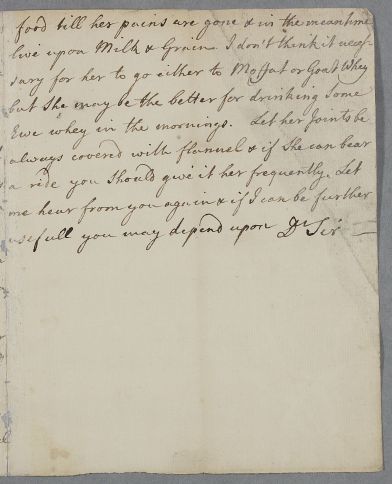 food till her pains are gone & in the meantime
live upon Milk & Grain. I don't think it neces-
sary for her to go either to Moffat or Goat Whey
but She may be the better for drinking Some
Ewe whey in the mornings. Let her Joints be
always covered with flannel & if She can bear
a ride you Should give it her frequently. Let
me hear from you again & if I can be further
usefull you may depend upon Dr Sir